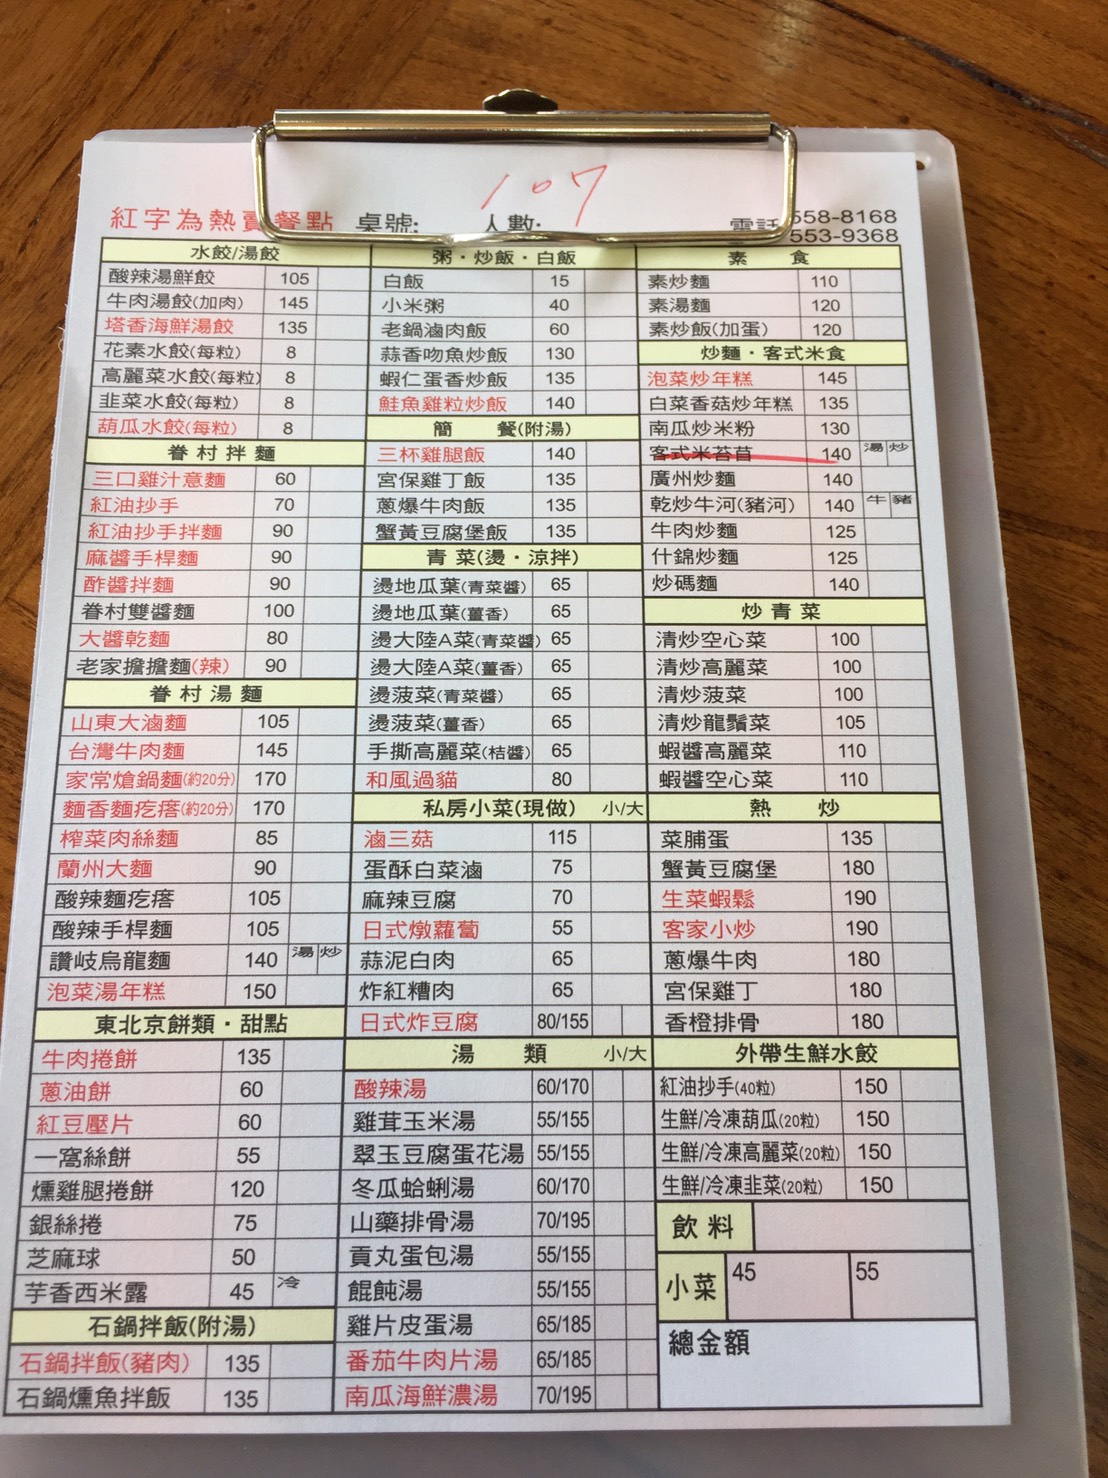 107
紅字為熱賣餐點 桌號: 人數: 電話 558-8168
553-9368
水餃/湯餃
酸辣湯鮮餃 105
牛肉湯餃(加肉) 145
塔香海鮮湯餃 135
花素水餃(每粒) 8
高麗菜水餃(每粒) 8
韭菜水餃(每粒) 8
葫瓜水餃(每粒) 8
眷村拌麵
三口雞汁意麵 60
紅油抄手 70
紅油抄手拌麵 90
麻醬手桿麵 90
酢醬拌麵 90
眷村雙醬麵 100
大醬乾麵 80
老家擔擔麵(辣) 90
眷村湯麵
山東大滷麵 105
台灣牛肉麵 145
家常熗鍋麵(約20分) 170
麵香麵疙瘩(約20分) 170
榨菜肉絲麵 85
蘭州大麵 90
酸辣麵疙瘩 105
酸辣手桿麵 105
讚岐烏龍麵 140 湯 炒
泡菜湯年糕 150
東北京餅類·甜點
牛肉捲餅 135
蔥油餅 60
紅豆壓片 60
一窩絲餅 55
燻雞腿捲餅 120
銀絲捲 75
芝麻球 50
芋香西米露 45 冷
石鍋拌飯(附湯)
石鍋拌飯(豬肉) 135
石鍋燻魚拌飯 135
粥·炒飯·白飯
白飯 15
小米粥 40
老鍋滷肉飯 60
蒜香吻魚炒飯 130
蝦仁蛋香炒飯 135
鮭魚雞粒炒飯 140
簡 餐(附湯)
三杯雞腿飯 140
宮保雞丁飯 135
蔥爆牛肉飯 135
蟹黃豆腐堡飯 135
青菜(燙·涼拌)
燙地瓜葉(青菜醬) 65
燙地瓜葉(薑香) 65
燙大陸A菜(青菜醬) 65
燙大陸A菜(薑香) 65
燙菠菜(青菜醬) 65
燙菠菜(薑香) 65
手撕高麗菜(桔醬) 65
和風過貓 80
私房小菜(現做) 小/大
滷三菇 115
蛋酥白菜滷 75
麻辣豆腐 70
日式燉蘿蔔 55
蒜泥白肉 65
炸紅糟肉 65
日式炸豆腐 80/155
湯 類 小/大
酸辣湯 60/170
雞茸玉米湯 55/155
翠玉豆腐蛋花湯 55/155
冬瓜蛤蜊湯 60/170
山藥排骨湯 70/195
貢丸蛋包湯 55/155
餛飩湯 55/155
雞片皮蛋湯 65/185
番茄牛肉片湯 65/185
南瓜海鮮濃湯 70/195
素 食
素炒麵 110
素湯麵 120
素炒飯(加蛋) 120
炒麵·客式米食
泡菜炒年糕 145
白菜香菇炒年糕 135
南瓜炒米粉 130
客式米苔苜 140 湯 炒
廣州炒麵 140
乾炒牛河(豬河) 140 牛 豬
牛肉炒麵 125
什錦炒麵 125
炒碼麵 140
炒青菜
清炒空心菜 100
清炒高麗菜 100
清炒菠菜 100
清炒龍鬚菜 105
蝦醬高麗菜 110
蝦醬空心菜 110
熱 炒
菜脯蛋 135
蟹黃豆腐堡 180
生菜蝦鬆 190
客家小炒 190
蔥爆牛肉 180
宮保雞丁 180
香橙排骨 180
外帶生鮮水餃
紅油抄手(40粒) 150
生鮮/冷凍葫瓜(20粒) 150
生鮮/冷凍高麗菜(20粒) 150
生鮮/冷凍韭菜(20粒) 150
飲料
小菜 45 55
總金額